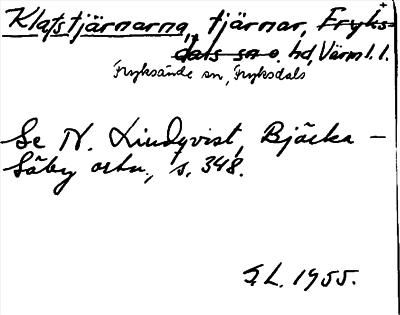 Klatstjärnarna, tjärnar, Fryks-
dals sn o. hd, Värml. l.
Fryksände sn, Fryksdals
Se N. Lindqvist, Bjärka -
Säby ortn., s. 348.
G.L. 1955.